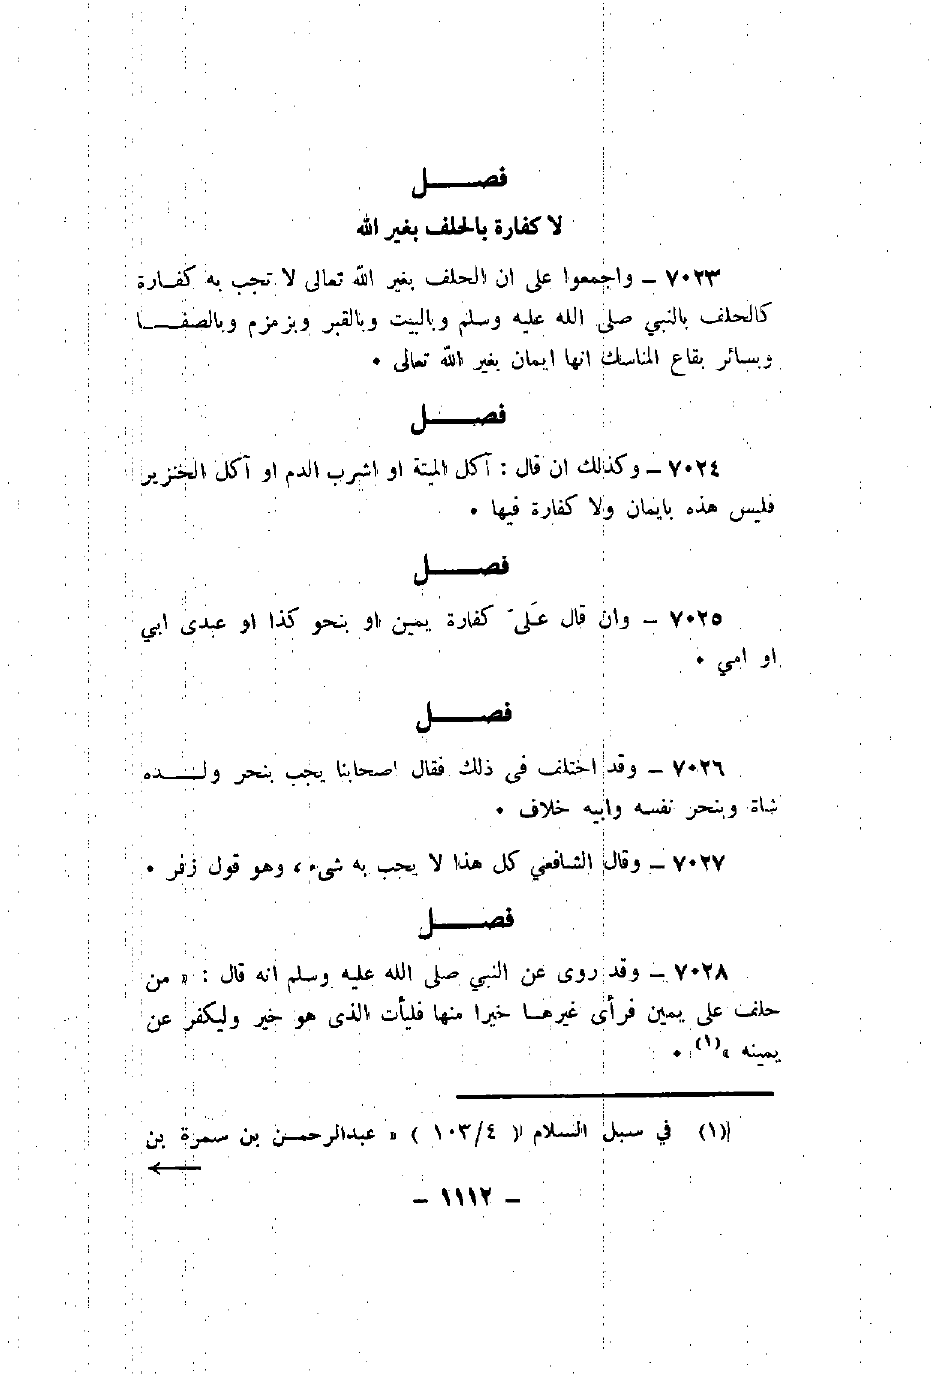 فصـــــل
لا كفارة بالحلف بغير الله
٧٠٢٣ ـ واجمعوا على ان الحلف بغير الله تعالى لا تجب به كفـارة
كالحلف بالنبي صلى الله عليه وسلم وبالبيت وبالقبر وبزمزم وبالصفـــا
وبسائر بقاع المناسك انها ايمان بغير الله تعالى ٠
فصـــــل
٧٠٢٤ ـ وكذلك ان قال : آكل الميتة او اشرب الدم او آكل الخنزير
فليس هذه بايمان ولا كفارة فيها ٠
فصـــــل
٧٠٢٥ ـ وان قال عَلىّ كفارة يمين او بنحو كذا او عبدى ابي
او امي ٠
فصـــــل
٧٠٢٦ ـ وقد اختلف في ذلك فقال اصحابنا يجب بنحر ولـــــده
شاة وبنحر نفسه وابيه خلاف ٠
٧٠٢٧ ـ وقال الشافعي كل هذا لا يحب به شيء ، وهو قول زفر ٠
فصـــــل
٧٠٢٨ ـ وقد روى عن النبي صلى الله عليه وسلم انه قال : « من
حلف على يمين فرأى غيرهـا خيرا منها فليأت الذى هو خير وليكفر عن
يمينه »(١) ٠
(١) في سبل السلام ( ٤/١٠٣ ) « عبدالرحمـن بن سمرة بن
ـ ١١١٢ ـ